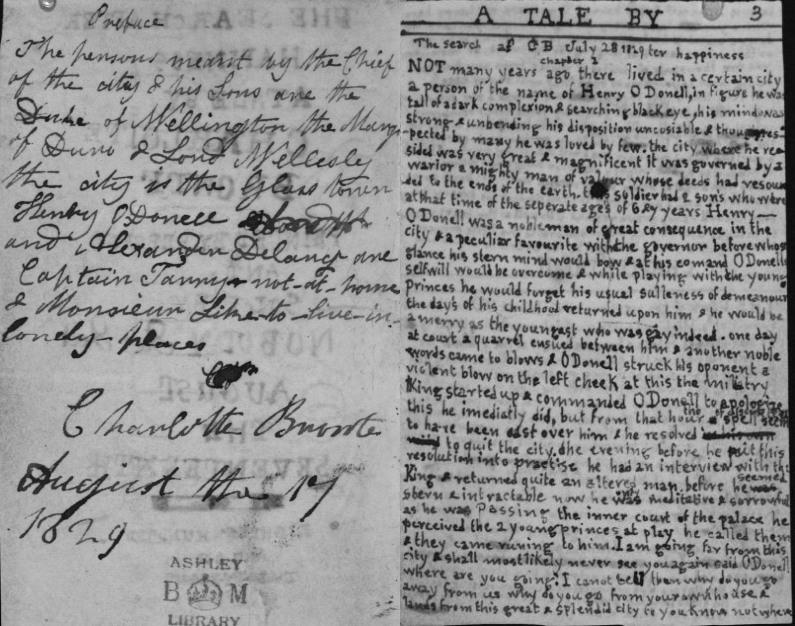 Preface
The persons meant by the Chief
of the city & his Sons are the
Duke of Wellington the Marquis
of Duro & Lord Wellesley
the city is the Glass town
Henry O'Donell
and Alexander Delancy are
Captain Tarry-not-at-home
& Monsieur Like-to-live-in-
lonely-places
Charlotte Bronte
August the 17
1829
ASHLEY
B M
LIBRARY
A TALE BY 3
The search af C B July 28 1829 ter happiness
chapter 1
NOT many years ago there lived in a certain city
a person of the name of Henry O Donell, in figure he was
tall of a dark complexion & searching black eye, his mind was
strong & unbending his disposition uncosiable & though res-
-pected by many he was loved by few. the city where he re
sided was very great & magnificent It was governed by a
warior a mighty man of valour whose deeds had resoun
ded to the ends of the earth. this soldier had 2 sons who were
at that time of the seperate ages of 6 & 7 years Henry
O Donell was a nobleman of great consequence in the
city & a peculiar favourite with the governor before whose
glance his stern mind would bow & at his comand O Donells
selfwill would be overcome & while playing with the young
Princes he would forget his usual sulleness of demeanour
the days of his childhood returned upon him & he would be
a merry as the youngest who was gay indeed. one day
at court a quarrel ensued between him & another noble
words came to blows & O Donell struck his oponent a
violent blow on the left cheek at this the military
King started up & commanded O Donell to apologize
this he imediatly did, but from that hour a spell of discontent seem
to have been cast over him & he resolved
to quit the city. the evening before he put this
resolution into practise he had an interview with the
King & returned quite an altered man. before he seemed
stern & intractable now he was only meditative & sorrowful
as he was Passing the inner court of the palace he
perceived the 2 young princes at play he called them
& they came runing to him. I am going far from this
city & shall most likely never see you again said O Donell
where are you going? I canot tell then why do you go
away from us why do you go from your own house &
lands from this great & splendid city to you know not where